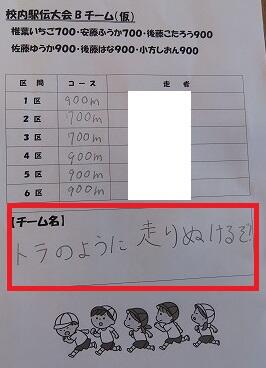 校内駅伝大会Bチーム(仮)
椎葉いちご700・安藤ふうか700・後藤こたろう900
佐藤ゆうか900・後藤はな900・小方しおん900
区間 コース 走者
1区 900m
2区 700m
3区 700m
4区 900m
5区 900m
6区 900m
【チーム名】
トラのように走りぬけるぞ!